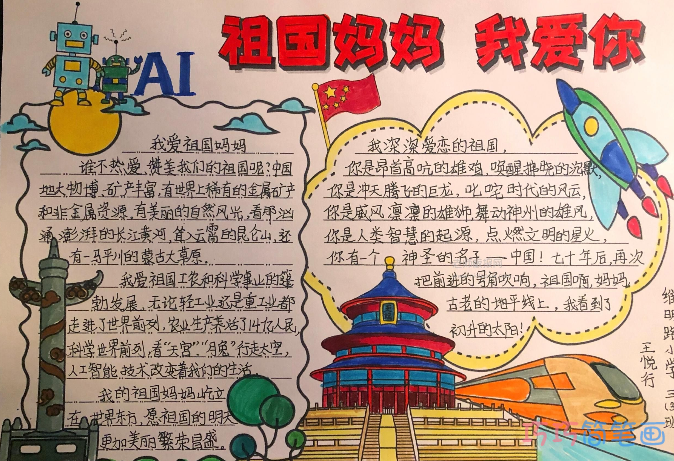 AI
祖国妈妈 我爱你
我爱祖国妈妈
谁不热爱、赞美我们的祖国呢?中国
地大物博、矿产丰富,有世界上稀有的金属矿产
和非金属资源,有美丽的自然风光,看那汹
涌澎湃的长江黄河,耸入云霄的昆仑山,还
有一马平川的蒙古大草原。
我爱祖国工农和科学事业的蓬
勃发展,无论轻工业还是重工业都
走进了世界前列,农业生产养活了14亿人民,
科学世界前列,看"天宫""月兔"行走太空,
人工智能技术改变着我们的生活。
我的祖国妈妈屹立
在世界东方,愿祖国的明天
更加美丽繁荣昌盛。
我深深爱恋的祖国,
你是昂首高吭的雄鸡,唤醒拂晓的沉默,
你是冲天腾飞的巨龙,叱咤时代的风云,
你是威风凛凛的雄狮,舞动神州的雄风,
你是人类智慧的起源,点燃文明的星火,
你有一个神圣的名字——中国!七十年后,再次
把前进的号角吹响,祖国啊,妈妈
古老的地平线上,我看到了
初升的太阳!
维明路小学三(3)班
王悦行
巧巧简笔画